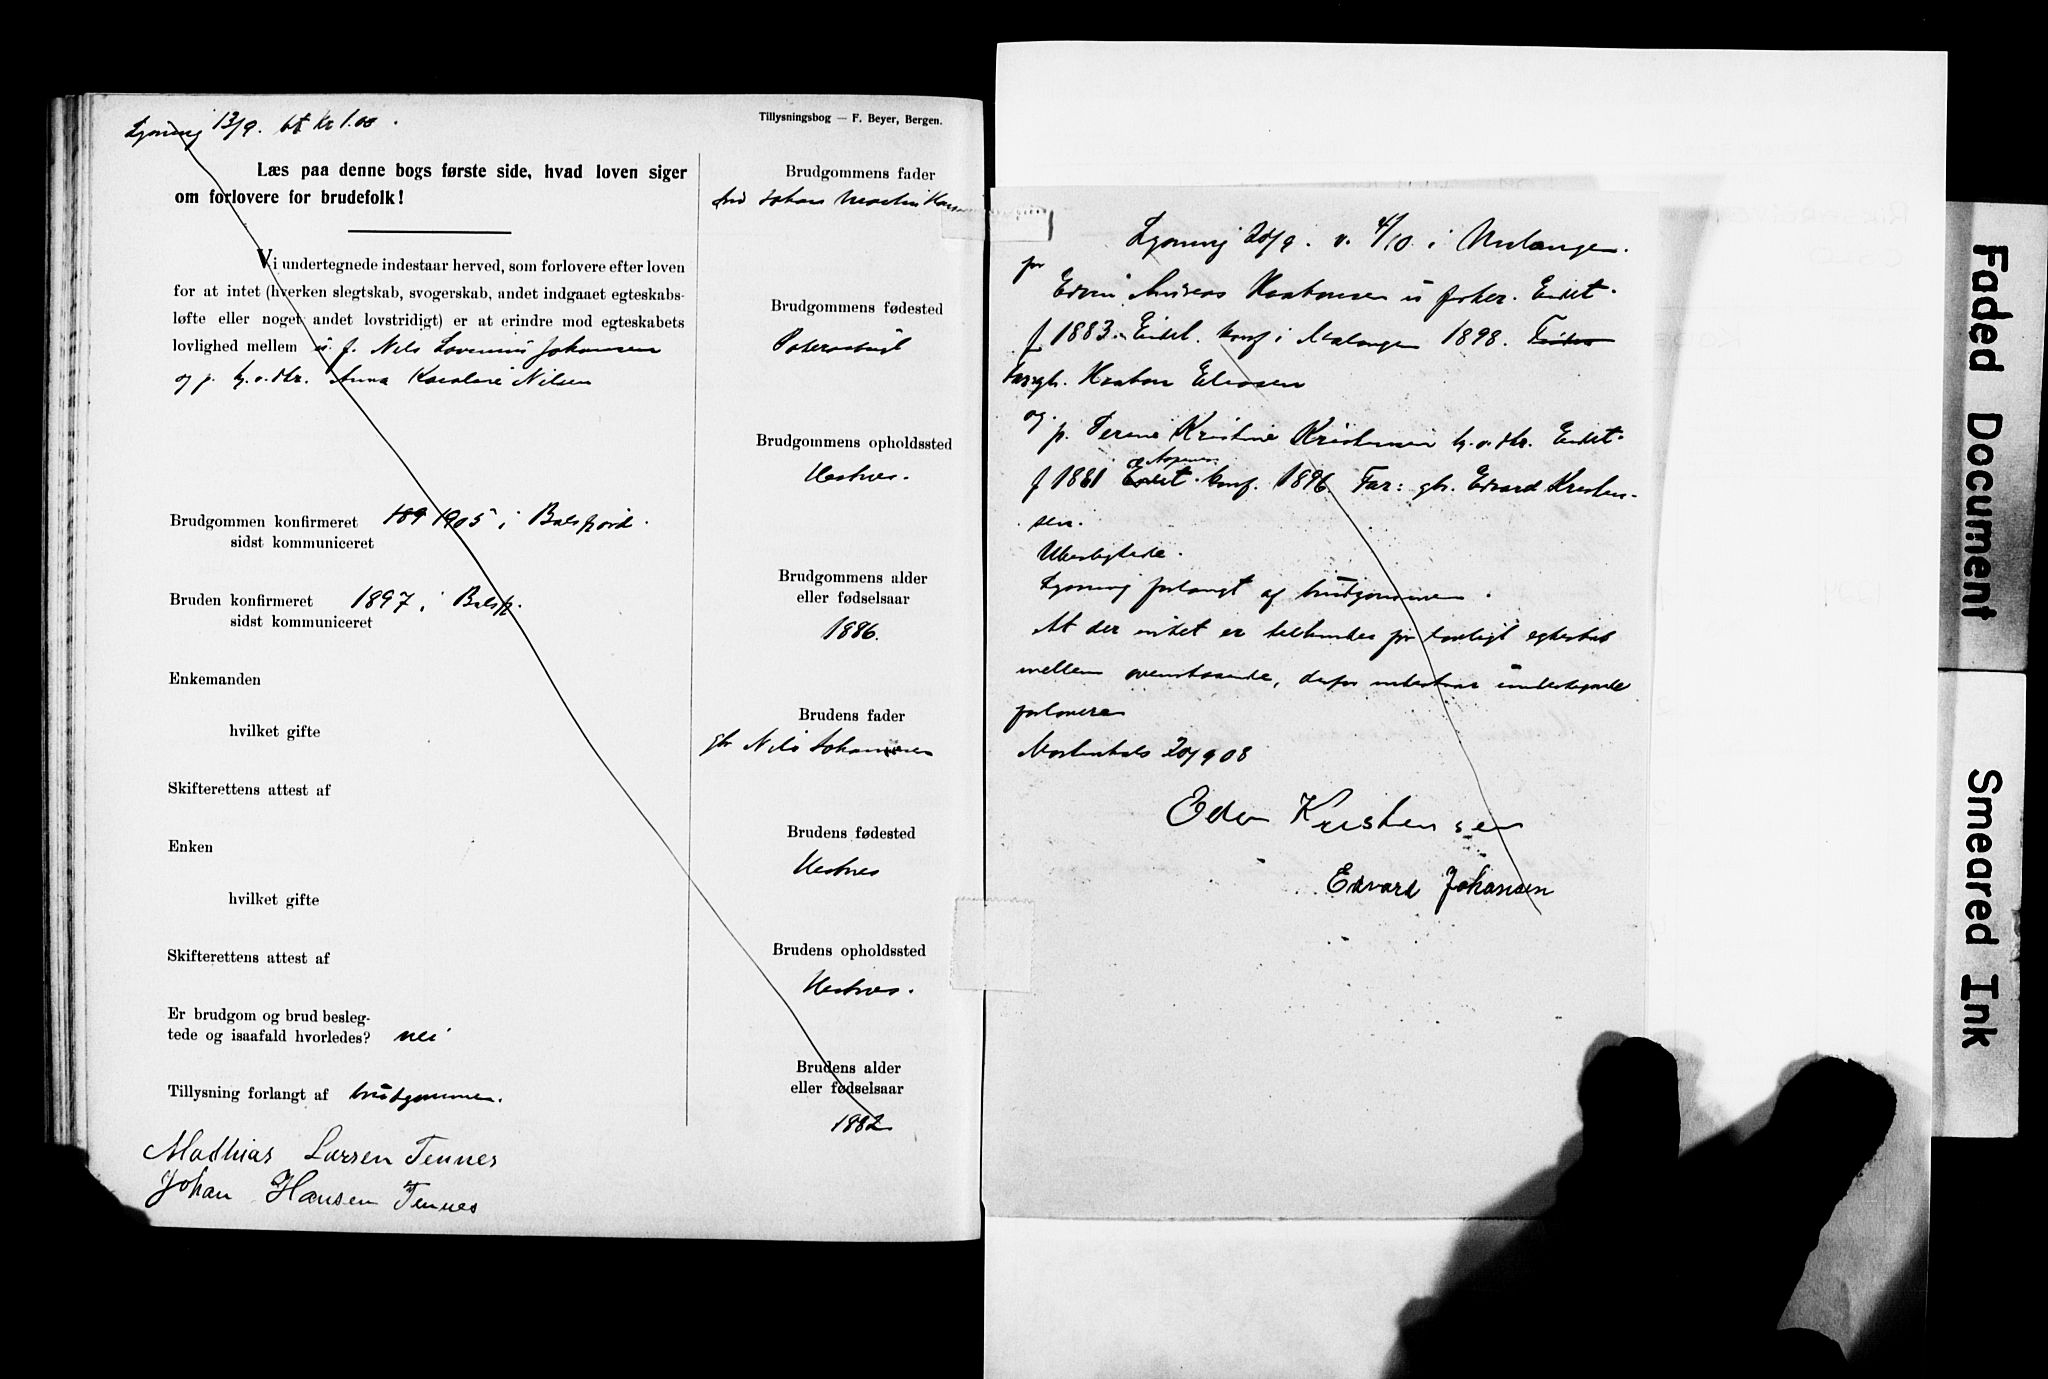 Lysning 13/9. bt Kr 1.00.
Tillysningsbog — F. Beyer, Bergen.
Læs paa denne bogs første side, hvad loven siger
om forlovere for brudefolk!
Vi undertegnede indestaar herved, som forlovere efter loven
for at intet (hverken slegtskab, svogerskab, andet indgaaet egteskabs-
løfte eller noget andet lovstridigt) er at erindre mod egteskabets
lovlighed mellem u. f. Nils Lovinius Johansen
og p. g. v. dtr. Anna Karoline Nilsen
Brudgommen konfirmeret 189 1905 i Balsfjord.
sidst kommuniceret
Bruden konfirmeret 1897 i Balsfj.
sidst kommuniceret
Enkemanden
hvilket gifte
Skifterettens attest af
Enken
hvilket gifte
Skifterettens attest af
Er brudgom og brud besleg-
tede og isaafald hvorledes? nei
Tillysning forlangt af brudgommen.
Mathias Larsen Tennes
Johan Hansen Tennes
Brudgommens fader
Johan Martin
Brudgommens fødested
Brudgommens opholdssted
Hestnes.
Brudgommens alder
eller fødselsaar
1886.
Brudens fader
gbr Nils Johannesen
Brudens fødested
Hestnes
Brudens opholdssted
Hestnes.
Brudens alder
eller fødselsaar
1882
Lysning 20/9. v. 4/10 i Malangen.
for
Edvin Andreas Haakonsen u. fisker. Eidet.
f 1883. Eidet. konf i Malangen 1898.
Far: gb. Haakon Eliasen
og
p. Perine Kristine Kristensen g. v. dtr. Eidet.
f 1881 Eidet. konf. 1896. Far: gb. Edvard Kristen-
sen.
Ubeslegtede.
Lysning forlangt af brudgommen.
At der intet er til hinder for lovligt egteskab
mellem ovenstaaende, derfor indestaar undertegnede
forlovere
Mortenhals 20/9 08
Edv Kristensen
Edvard Johansen
Faded Document
Smeared Ink